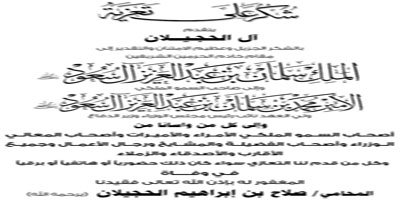 شكر على تعزية
يتقدم
آل الحجيلان
بالشكر الجزيل وعظيم الامتنان والتقدير إلى
مقام خادم الحرمين الشريفين
الملك سلمان بن عبدالعزيز آل سعود
وإلى صاحب السمو الملكي
الأمير محمد بن سلمان بن عبدالعزيز آل سعود
ولي العهد نائب رئيس مجلس الوزراء وزير الدفاع
وإلى كل من واسانا من
أصحاب السمو الملكي الأمراء والأميرات وأصحاب المعالي
الوزراء وأصحاب الفضيلة والمشايخ ورجال الأعمال وجميع
الأقارب والأصدقاء والزملاء
وكل من قدم لنا التعازي سواء كان ذلك حضورياً أو هاتفياً أو برقياً
في وفاة
المغفور له بإذن الله تعالى فقيدنا
المحامي/ صلاح بن إبراهيم الحجيلان (يرحمه الله)